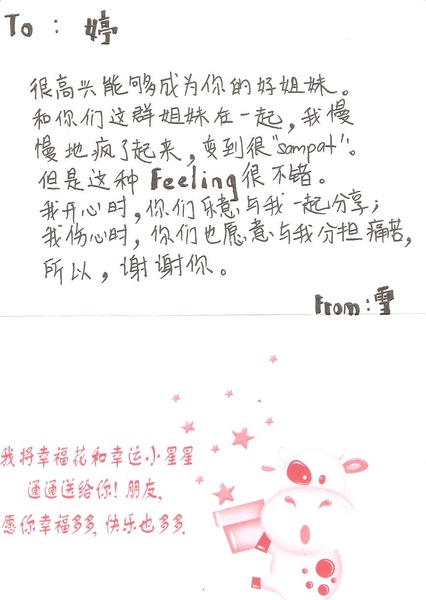 To : 婷
很高兴能够成为你的好姐妹。
和你们这群姐妹在一起，我慢
慢地疯了起来，变到很"sampat"。
但是这种Feeling很不错。
我开心时，你们乐意与我一起分享；
我伤心时，你们也愿意与我分担痛苦，
所以，谢谢你。
From : 雪
我将幸福花和幸运小星星
通通送给你！朋友，
愿你幸福多多，快乐也多多．